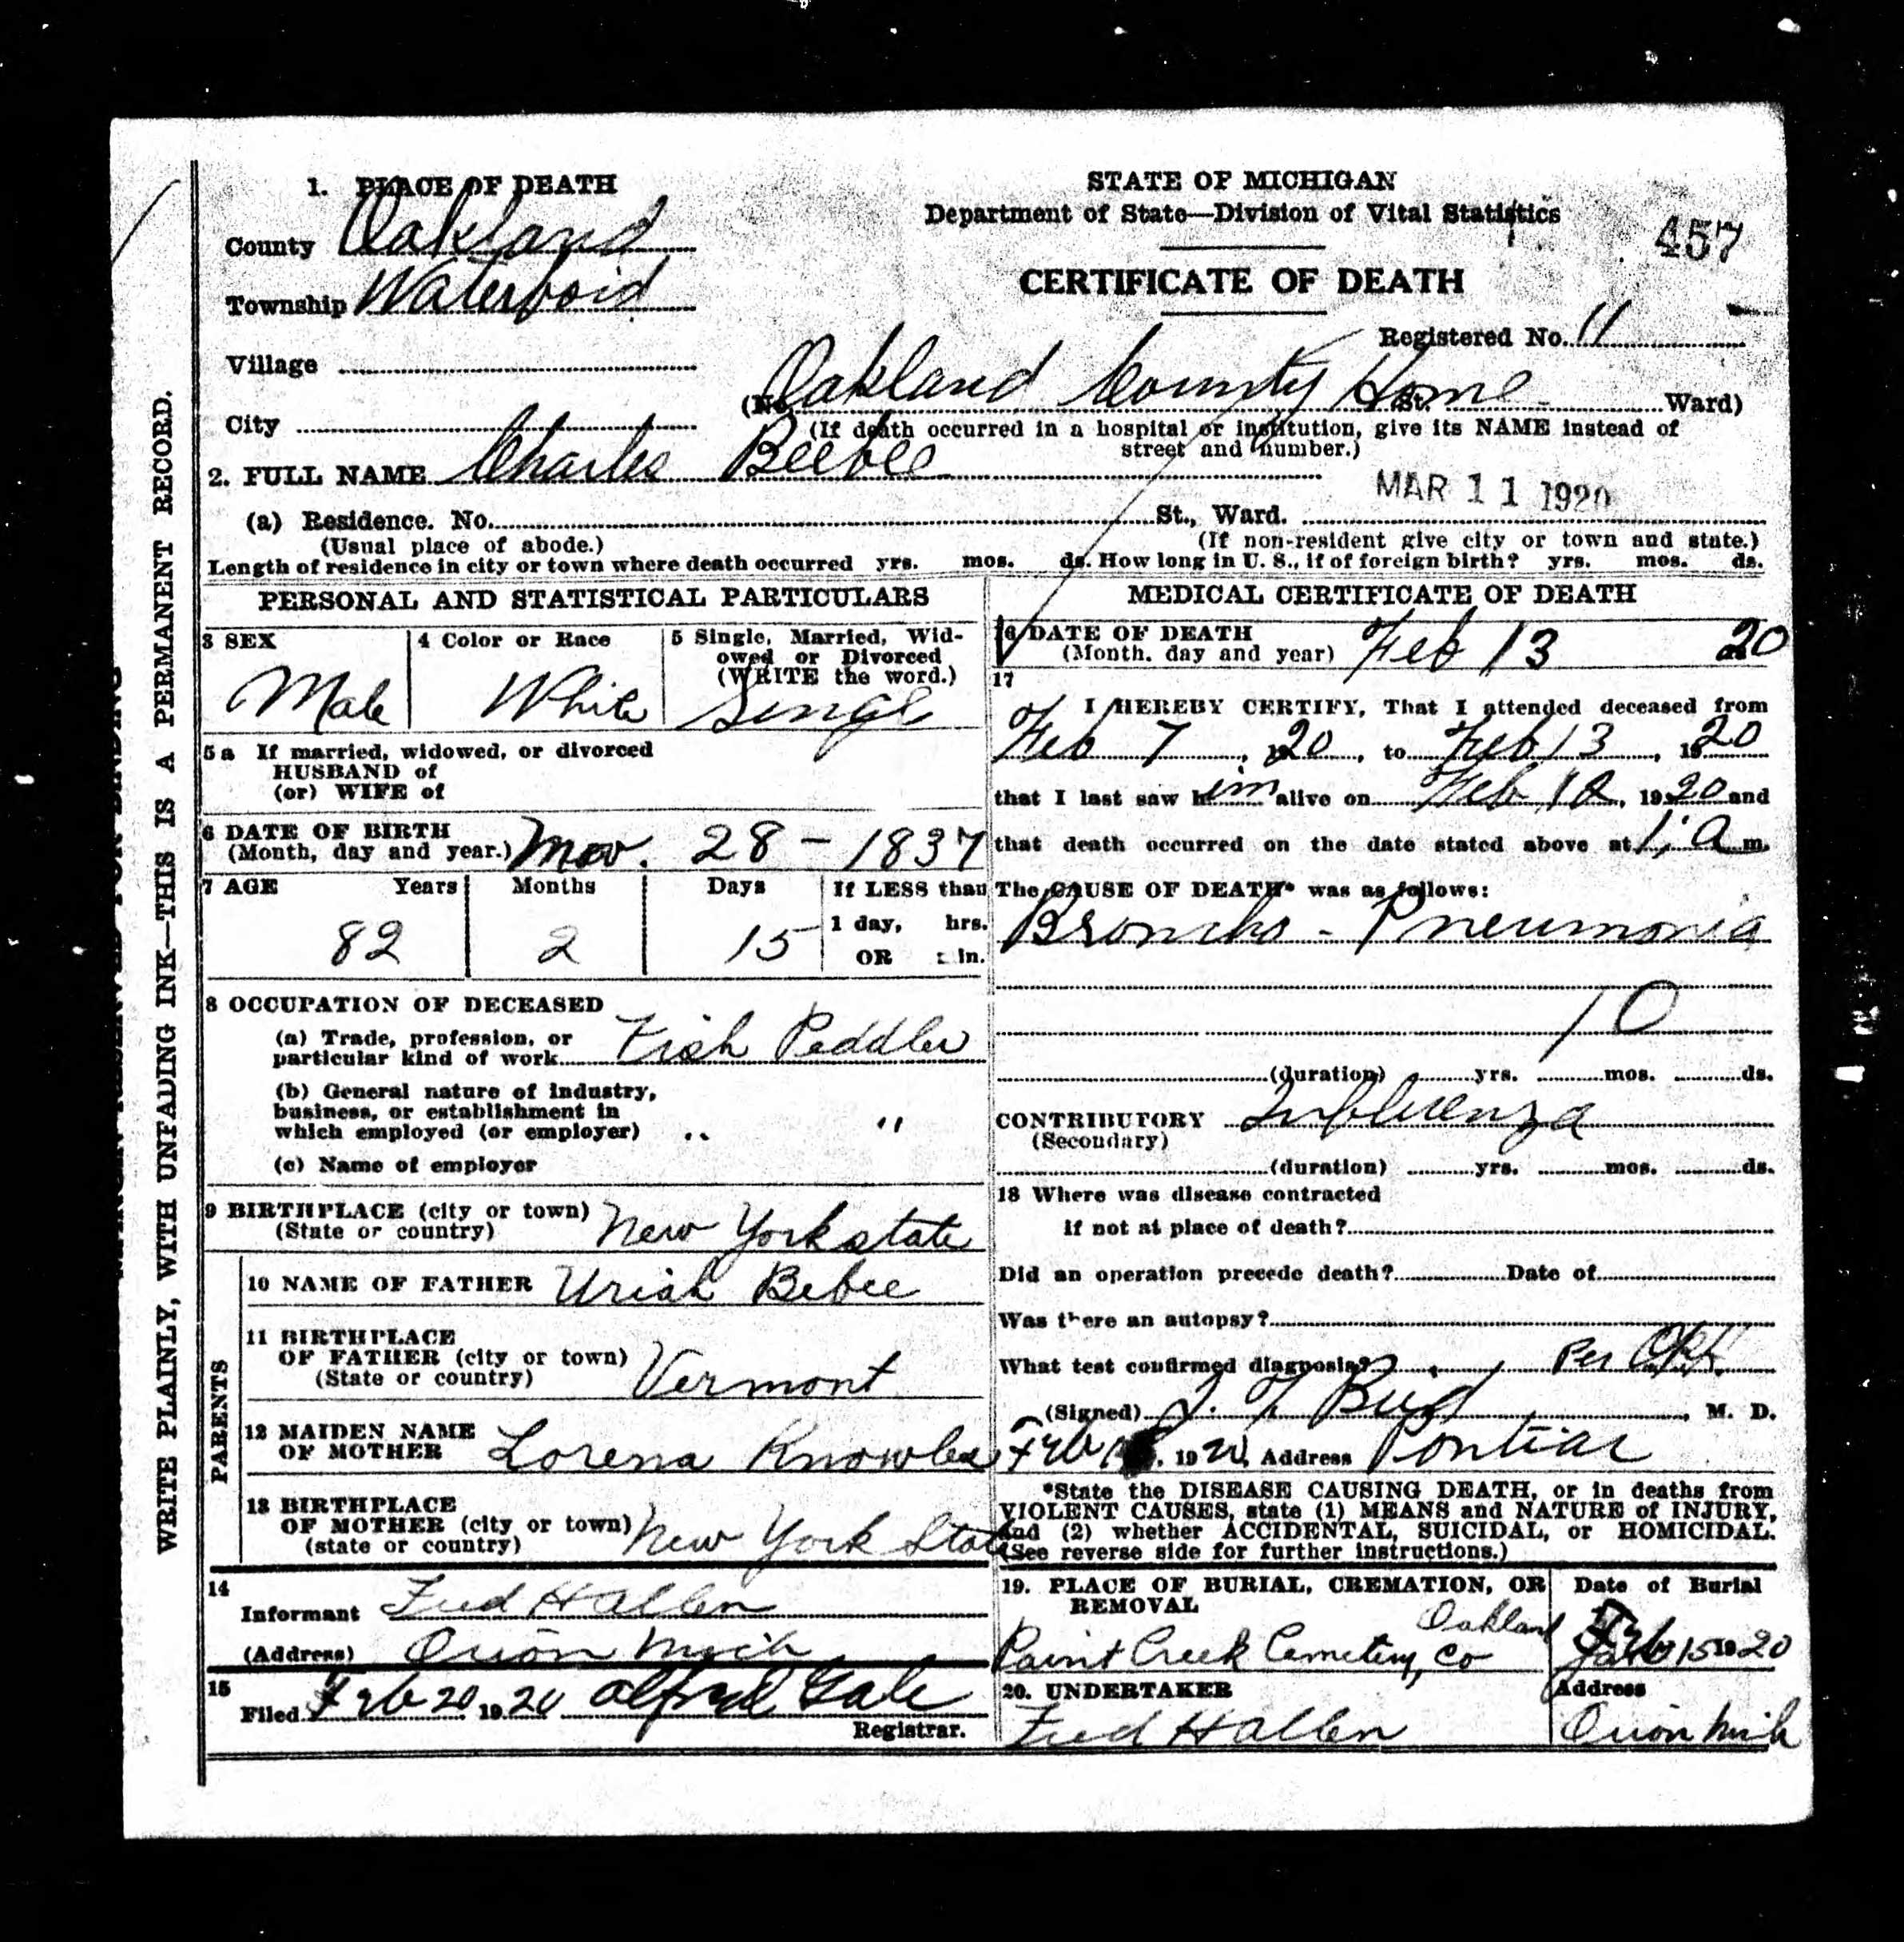 1. PLACE OF DEATH
County Oakland
Township Waterford
Village
City
STATE OF MICHIGAN
Department of State—Division of Vital Statistics
457
CERTIFICATE OF DEATH
Registered No. 11
(No. Oakland County Home St. Ward)
(If death occurred in a hospital or institution, give its NAME instead of
street and number.)
2. FULL NAME Charles Beebee
MAR 11 1920
(a) Residence. No. St., Ward.
(Usual place of abode.) (If non-resident give city or town and state.)
Length of residence in city or town where death occurred yrs. mos. ds. How long in U. S., if of foreign birth? yrs. mos. ds.
PERSONAL AND STATISTICAL PARTICULARS
3 SEX
Male
4 Color or Race
White
5 Single, Married, Wid-
owed or Divorced
(WRITE the word.)
Single
5a If married, widowed, or divorced
HUSBAND of
(or) WIFE of
6 DATE OF BIRTH
(Month, day and year.) Nov. 28 - 1837
7 AGE Years Months Days If LESS than
1 day, hrs.
82 2 15
OR in.
8 OCCUPATION OF DECEASED
(a) Trade, profession, or
particular kind of work Fish Peddler
(b) General nature of industry,
business, or establishment in
which employed (or employer) " "
(c) Name of employer
9 BIRTHPLACE (city or town)
(State or country) New York state
PARENTS
10 NAME OF FATHER Uriah Bebee
11 BIRTHPLACE
OF FATHER (city or town)
(State or country) Vermont
12 MAIDEN NAME
OF MOTHER Lorena Knowles
13 BIRTHPLACE
OF MOTHER (city or town)
(state or country) New York State
14
Informant Fred Hallen
(Address) Orion Mich
15
Filed Feb 20 1920 Alfred Gale
Registrar.
MEDICAL CERTIFICATE OF DEATH
16 DATE OF DEATH
(Month, day and year) Feb 13 20
17
I HEREBY CERTIFY, That I attended deceased from
Feb 7, 20, to Feb 13, 1920
that I last saw him alive on Feb 12, 1920 and
that death occurred on the date stated above at 1; a m.
The CAUSE OF DEATH* was as follows:
Broncho - Pneumonia
10
(duration) yrs. mos. ds.
CONTRIBUTORY Influenza
(Secondary)
(duration) yrs. mos. ds.
18 Where was disease contracted
if not at place of death?
Did an operation precede death? Date of
Was there an autopsy?
What test confirmed diagnosis? Per
(Signed) M. D.
Feb 1920, Address Pontiac
*State the DISEASE CAUSING DEATH, or in deaths from
VIOLENT CAUSES, state (1) MEANS and NATURE of INJURY,
and (2) whether ACCIDENTAL, SUICIDAL, or HOMICIDAL.
(See reverse side for further instructions.)
19. PLACE OF BURIAL, CREMATION, OR
REMOVAL
Paint Creek Cemetery, Oakland Co
Date of Burial
Feb 15 1920
20. UNDERTAKER
Fred Hallen
Address
Orion Mich
WRITE PLAINLY, WITH UNFADING INK—THIS IS A PERMANENT RECORD.